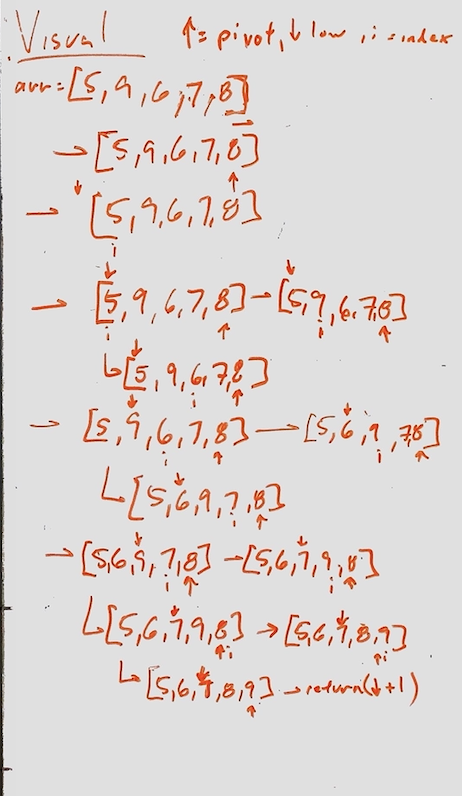 Visual ↑= pivot, ↓ low, i = index
arr=[5,9,6,7,8]
→[5,9,6,7,8]
↑
→ ↓[5,9,6,7,8]
i ↑
↓ ↓
→ [5,9,6,7,8]→[5,9,6,7,8]
i ↑ i ↑
↓
↳[5,9,6,7,8]
i ↑
↓ ↓
→ [5,9,6,7,8]→[5,6,9,7,8]
i ↑ i ↑
↓
↳[5,6,9,7,8]
i ↑
↓ ↓
→[5,6,9,7,8]→[5,6,7,9,8]
i ↑ i ↑
↓ ↓
↳[5,6,7,9,8]→[5,6,7,8,9]
↑i ↑i
↓
↳[5,6,7,8,9]→return(↓+1)
↑